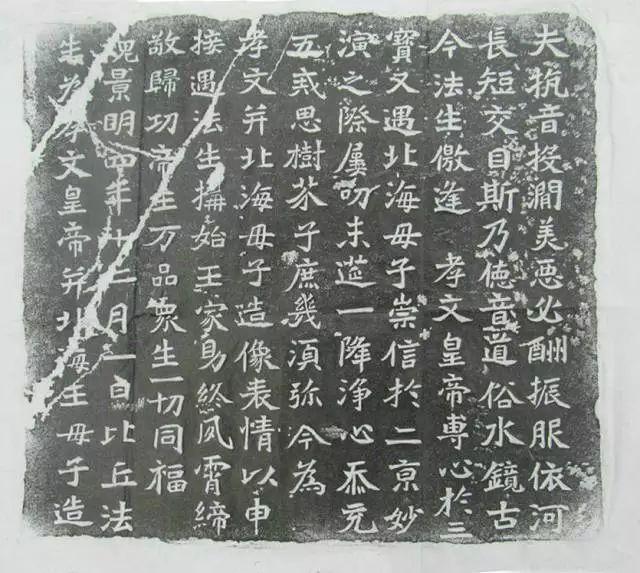 夫抗音投澗美惡必酬振服依河
長短交目斯乃德音道俗水鏡古
今法生儌逢 孝文皇帝專心於三
寶又遇北海母子崇信於二京妙
演之際屢叨末筵一降淨心忝充
五戒思樹芥子庶幾須弥今為
孝文并北海母子造像表情以申
接遇法生構始王家終夙霄締
敬歸功帝王万品衆生一切同福
魏景明四年十二月一日比丘法
生為孝文皇帝并北海王母子造